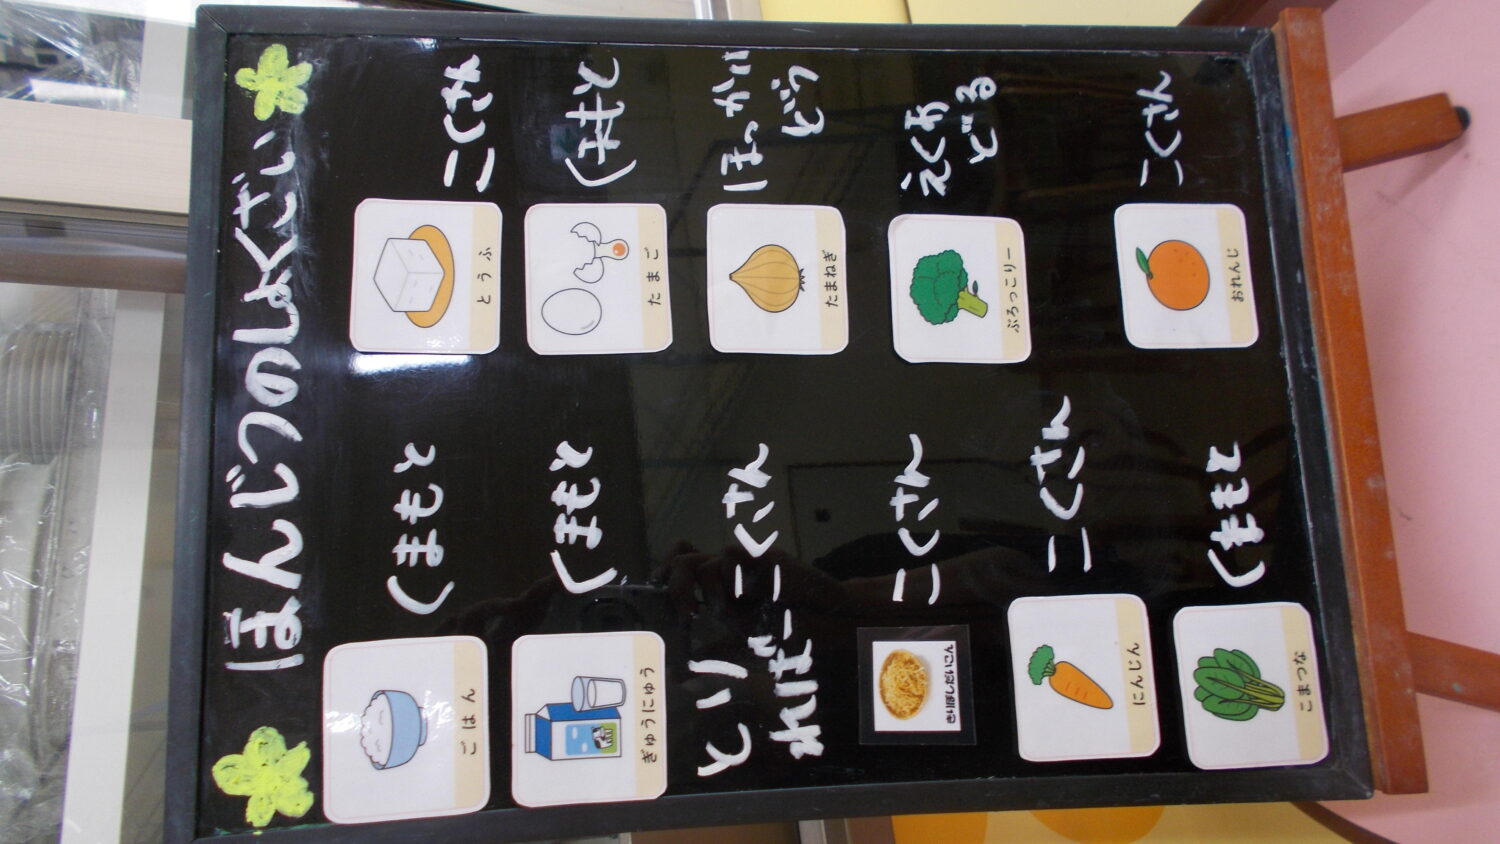 ほんじつのしょくざい
ごはん
くまもと
とうふ
こくさん
ぎゅうにゅう
くまもと
たまご
くまもと
とり
ればー
こくさん
たまねぎ
ほっかい
どう
きりぼしだいこん
こくさん
ぶろっこりー
えくあ
どる
にんじん
こくさん
おれんじ
こくさん
こまつな
くまもと